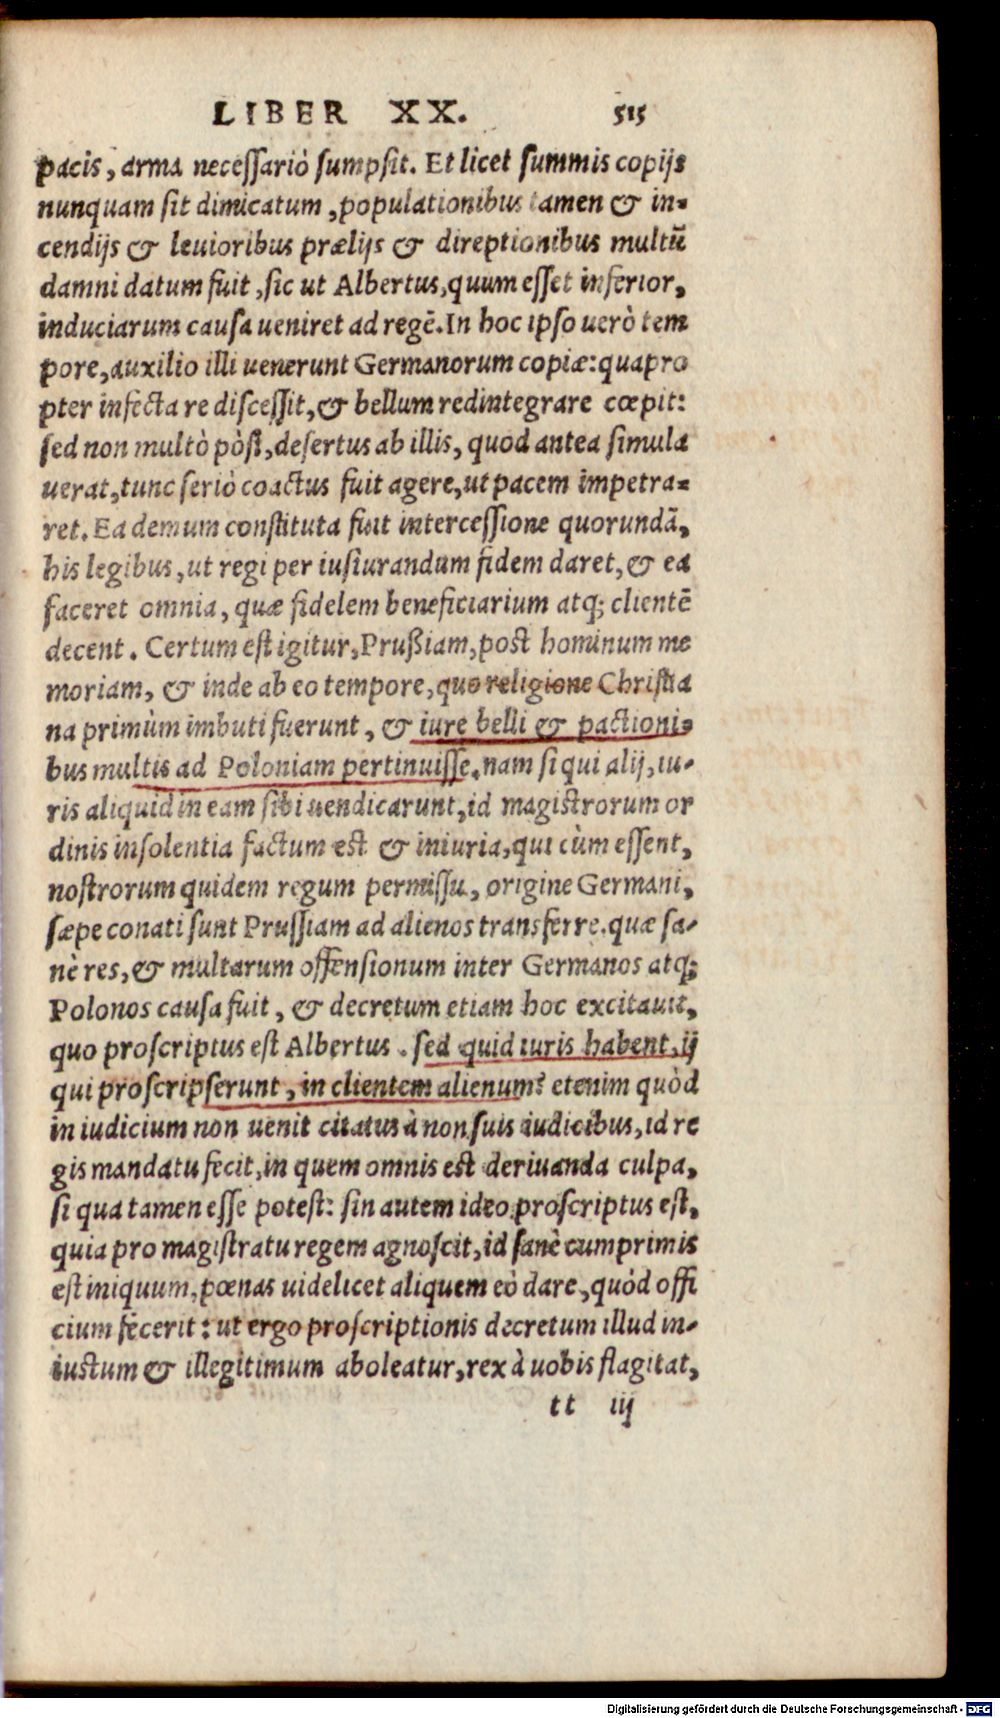 LIBER XX. 515
pacis, arma necessariò sumpsit. Et licet summis copijs
nunquam sit dimicatum, populationibus tamen & in-
cendijs & leuioribus prælijs & direptionibus multũ
damni datum fuit, sic ut Albertus, quum esset inferior,
induciarum causa ueniret ad regẽ. In hoc ipso uerò tem
pore, auxilio illi uenerunt Germanorum copiæ: quapro
pter infecta re discessit, & bellum redintegrare cœpit:
sed non multò pòst, desertus ab illis, quod antea simula
uerat, tunc seriò coactus fuit agere, ut pacem impetra-
ret. Ea demum constituta fuit intercessione quorundã,
his legibus, ut regi per iusiurandum fidem daret, & ea
faceret omnia, quæ fidelem beneficiarium atq; clientẽ
decent. Certum est igitur, Prußiam, post hominum me
moriam, & inde ab eo tempore, quo religione Christia
na primùm imbuti fuerunt, & iure belli & pactioni-
bus multis ad Poloniam pertinuisse. nam si qui alij, iu-
ris aliquid in eam sibi uendicarunt, id magistrorum or
dinis insolentia factum est & iniuria, qui cùm essent,
nostrorum quidem regum permissu, origine Germani,
sæpe conati sunt Prussiam ad alienos transferre. quæ sa-
nè res, & multarum offensionum inter Germanos atq;
Polonos causa fuit, & decretum etiam hoc excitauit,
quo proscriptus est Albertus. sed quid iuris habent, ij
qui proscripserunt, in clientem alienum? etenim quòd
in iudicium non uenit citatus à non suis iudicibus, id re
gis mandatu fecit, in quem omnis est deriuanda culpa,
si qua tamen esse potest: sin autem ideo proscriptus est,
quia pro magistratu regem agnoscit, id sanè cumprimis
est iniquum, pœnas uidelicet aliquem eò dare, quòd offi
cium fecerit: ut ergo proscriptionis decretum illud in-
iustum & illegitimum aboleatur, rex à uobis flagitat,
tt iij
Digitalisierung gefördert durch die Deutsche Forschungsgemeinschaft - DFG